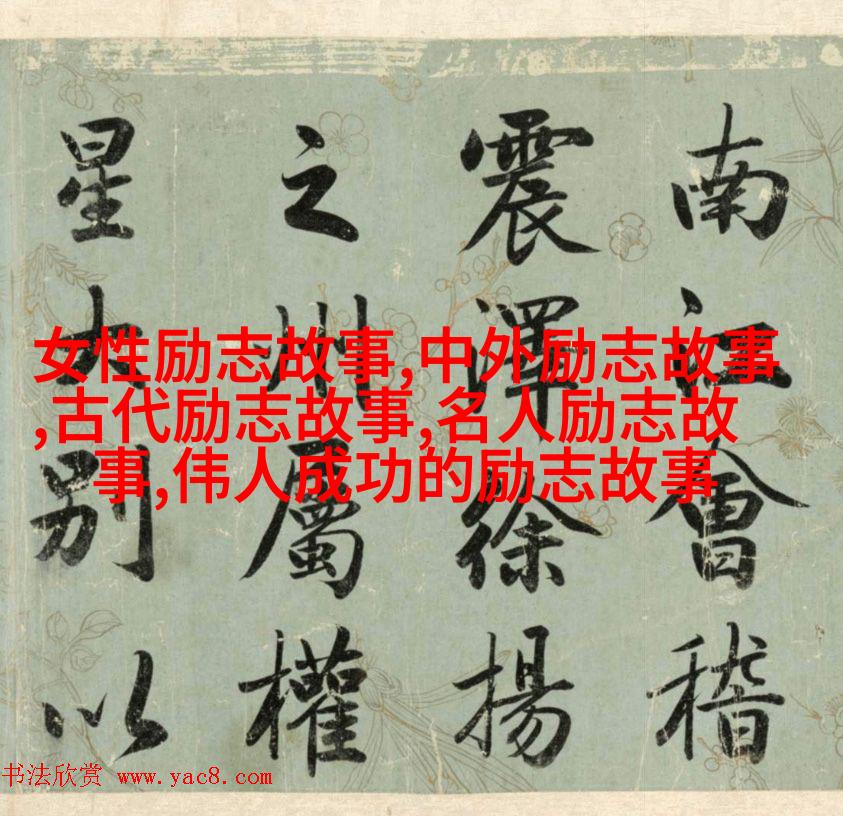 南江會稽
震澤徐揚
之州屬權
星大別以
女性励志故事,中外励志故事
,古代励志故事,名人励志故
事,伟人成功的励志故事
书法欣赏 www.yac8.com